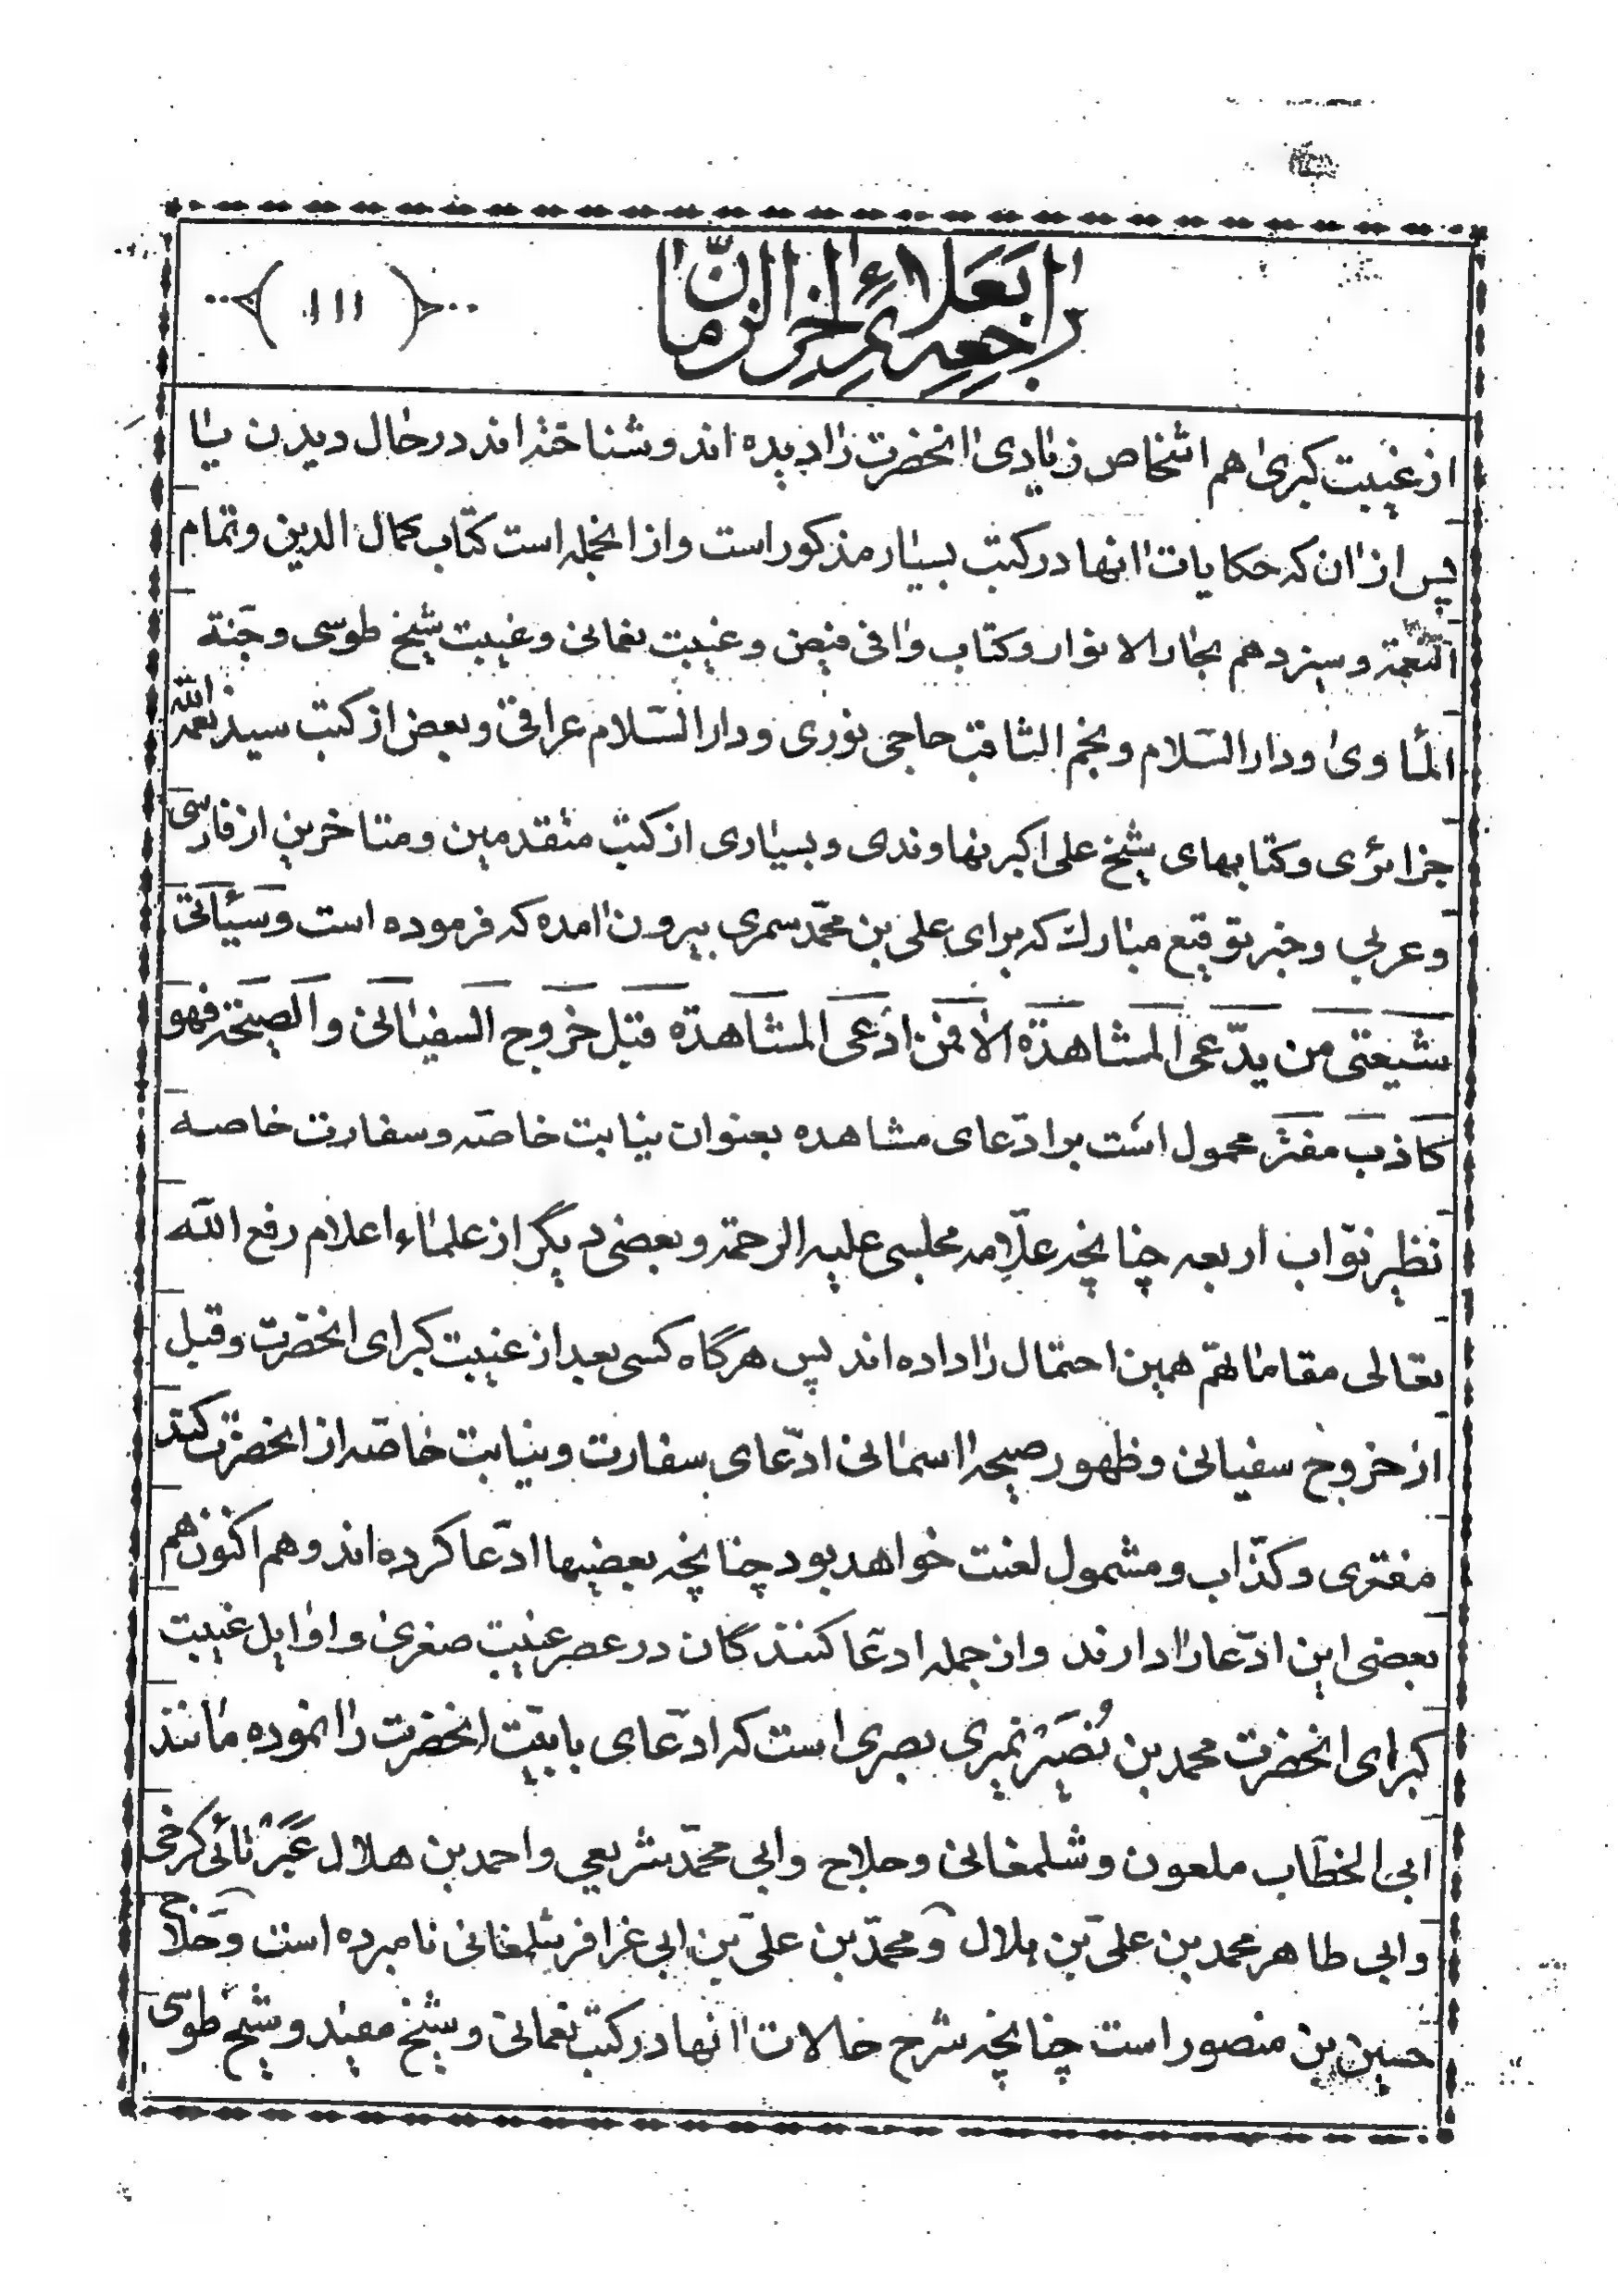 راجعه بعلائم اخر الزمان
(١١١)
از غیبت کبری هم اشخاص زیادی انحضرت را دیده اند و شناخته اند در حال دیدن یا
پس از ان که حکایات انها در کتب بسیار مذکور است و از انجمله است کتاب کمال الدین و تمام
النعمة و سیزدهم بحار الانوار و کتاب وافی فیض و غیبت نعمانی و غیبت شیخ طوسی و جنة
المأوی و دار السلام و نجم الثاقب حاجی نوری و دار السلام عراقی و بعض از کتب سید نعمة الله
جزائری و کتابهای شیخ علی اکبر نهاوندی و بسیاری از کتب متقدمین و متاخرین از فارسی
و عربی و خبر توقیع مبارک که برای علی بن محمد سمری بیرون امده که فرموده است و سیأتی
شیعتی من یدّعی المشاهدة الا فمن ادعی المشاهدة قبل خروج السفیانی و الصیحة فهو
کاذب مفتر محمول است بر ادّعای مشاهده بعنوان نیابت خاصّه و سفارت خاصه
نظیر نوّاب اربعه چنانچه علّامه مجلسی علیه الرحمة و بعضی دیگر از علماء اعلام رفع الله
تعالی مقاماتهم همین احتمال را داده اند پس هرگاه کسی بعد از غیبت کبرای انحضرت و قبل
از خروج سفیانی و ظهور صیحه اسمانی ادّعای سفارت و نیابت خاصّه از انحضرت کند
مفتری و کذّاب و مشمول لعنت خواهد بود چنانچه بعضیها ادّعا کرده اند و هم اکنون هم
بعضی این ادّعا را دارند و از جمله ادّعا کنندگان در عصر غیبت صغری و اوایل غیبت
کبرای انحضرت محمد بن نُصَیْر نمیری بصری است که ادّعای بابیّت انحضرت را نموده مانند
ابی الخطّاب ملعون و شلمغانی و حلاج و ابی محمّد شریعی و احمد بن هلال عَبَرْتائی کرخی
و ابی طاهر محمد بن علیّ بن بلال و محمّد بن علیّ بن ابی عزافر شلمغانی نامبرده است و حلاج
حسین بن منصور است چنانچه شرح حالات انها در کتب نعمانی و شیخ مفید و شیخ طوسی